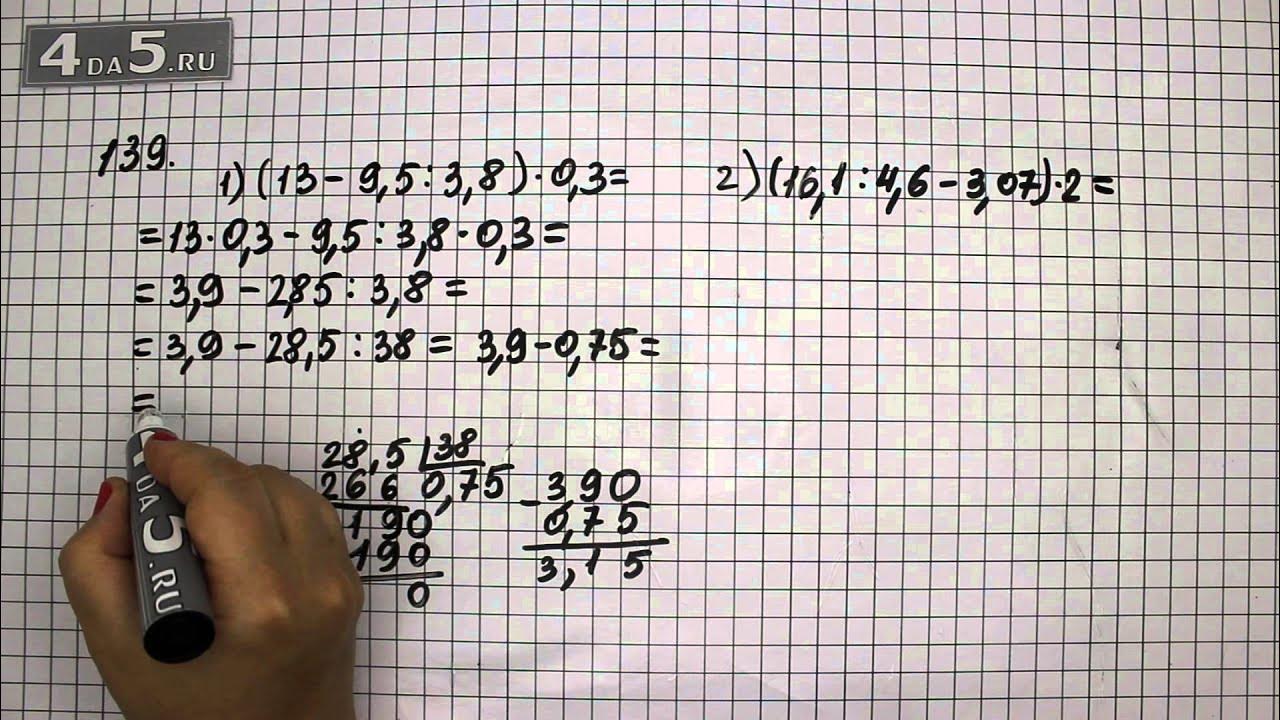 4DA5.RU
139.
1) (13 - 9,5 : 3,8) · 0,3 =
= 13 · 0,3 - 9,5 : 3,8 · 0,3 =
= 3,9 - 2,85 : 3,8 =
= 3,9 - 28,5 : 38 = 3,9 - 0,75 =
=
2) (16,1 : 4,6 - 3,07) · 2 =
28,5 | 38
26 6 0,75
190
190
0
- 3,90
0,75
3,15
DA5.RU